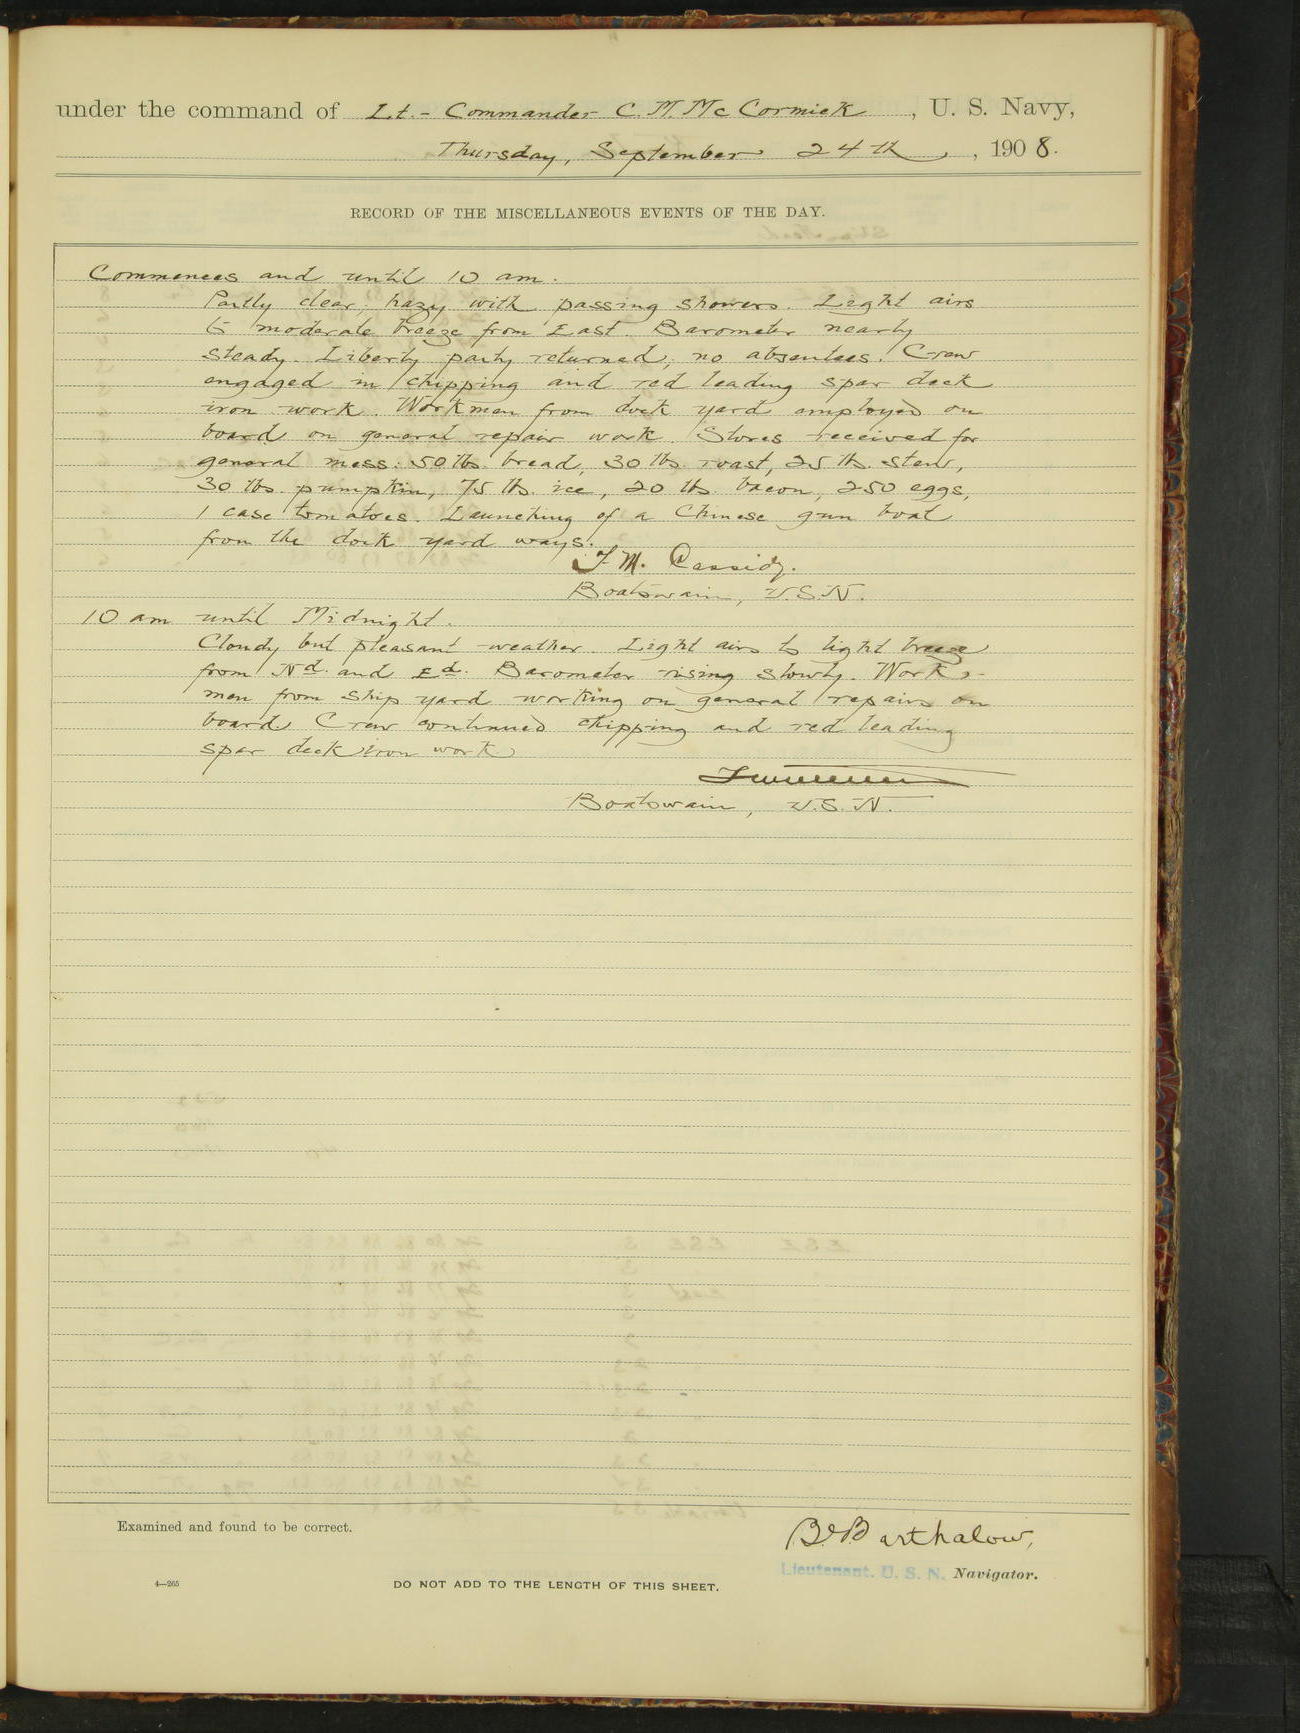 under the command of Lt.- Commander C. M. Mc Cormick, U. S. Navy,
Thursday, September 24th, 1908.
RECORD OF THE MISCELLANEOUS EVENTS OF THE DAY.
Commences and until 10 am.
Partly clear; hazy with passing showers. Light airs
to moderate breeze from East. Barometer nearly
steady. Liberty party returned; no absentees. Crew
engaged in chipping and red leading spar deck
iron work. Workmen from dock yard employed on
board on general repair work. Stores received for
general mess: 50 lbs. bread, 30 lbs. roast, 25 lbs. stew,
30 lbs. pumpkin, 75 lbs. ice, 20 lbs. bacon, 250 eggs,
1 case tomatoes. Launching of a Chinese gun boat
from the dock yard ways.
J. M. Cassidy.
Boatswain, U.S.N.
10 am until Midnight.
Cloudy but pleasant weather. Light airs to light breeze
from Nd. and Ed. Barometer rising slowly. Work-
men from ship yard working on general repairs on
board. Crew continued chipping and red leading
spar deck iron work
Boatswain, U.S.N.
Examined and found to be correct.
B. B. Barthalow,
Lieutenant. U. S. N. Navigator.
4—265
DO NOT ADD TO THE LENGTH OF THIS SHEET.